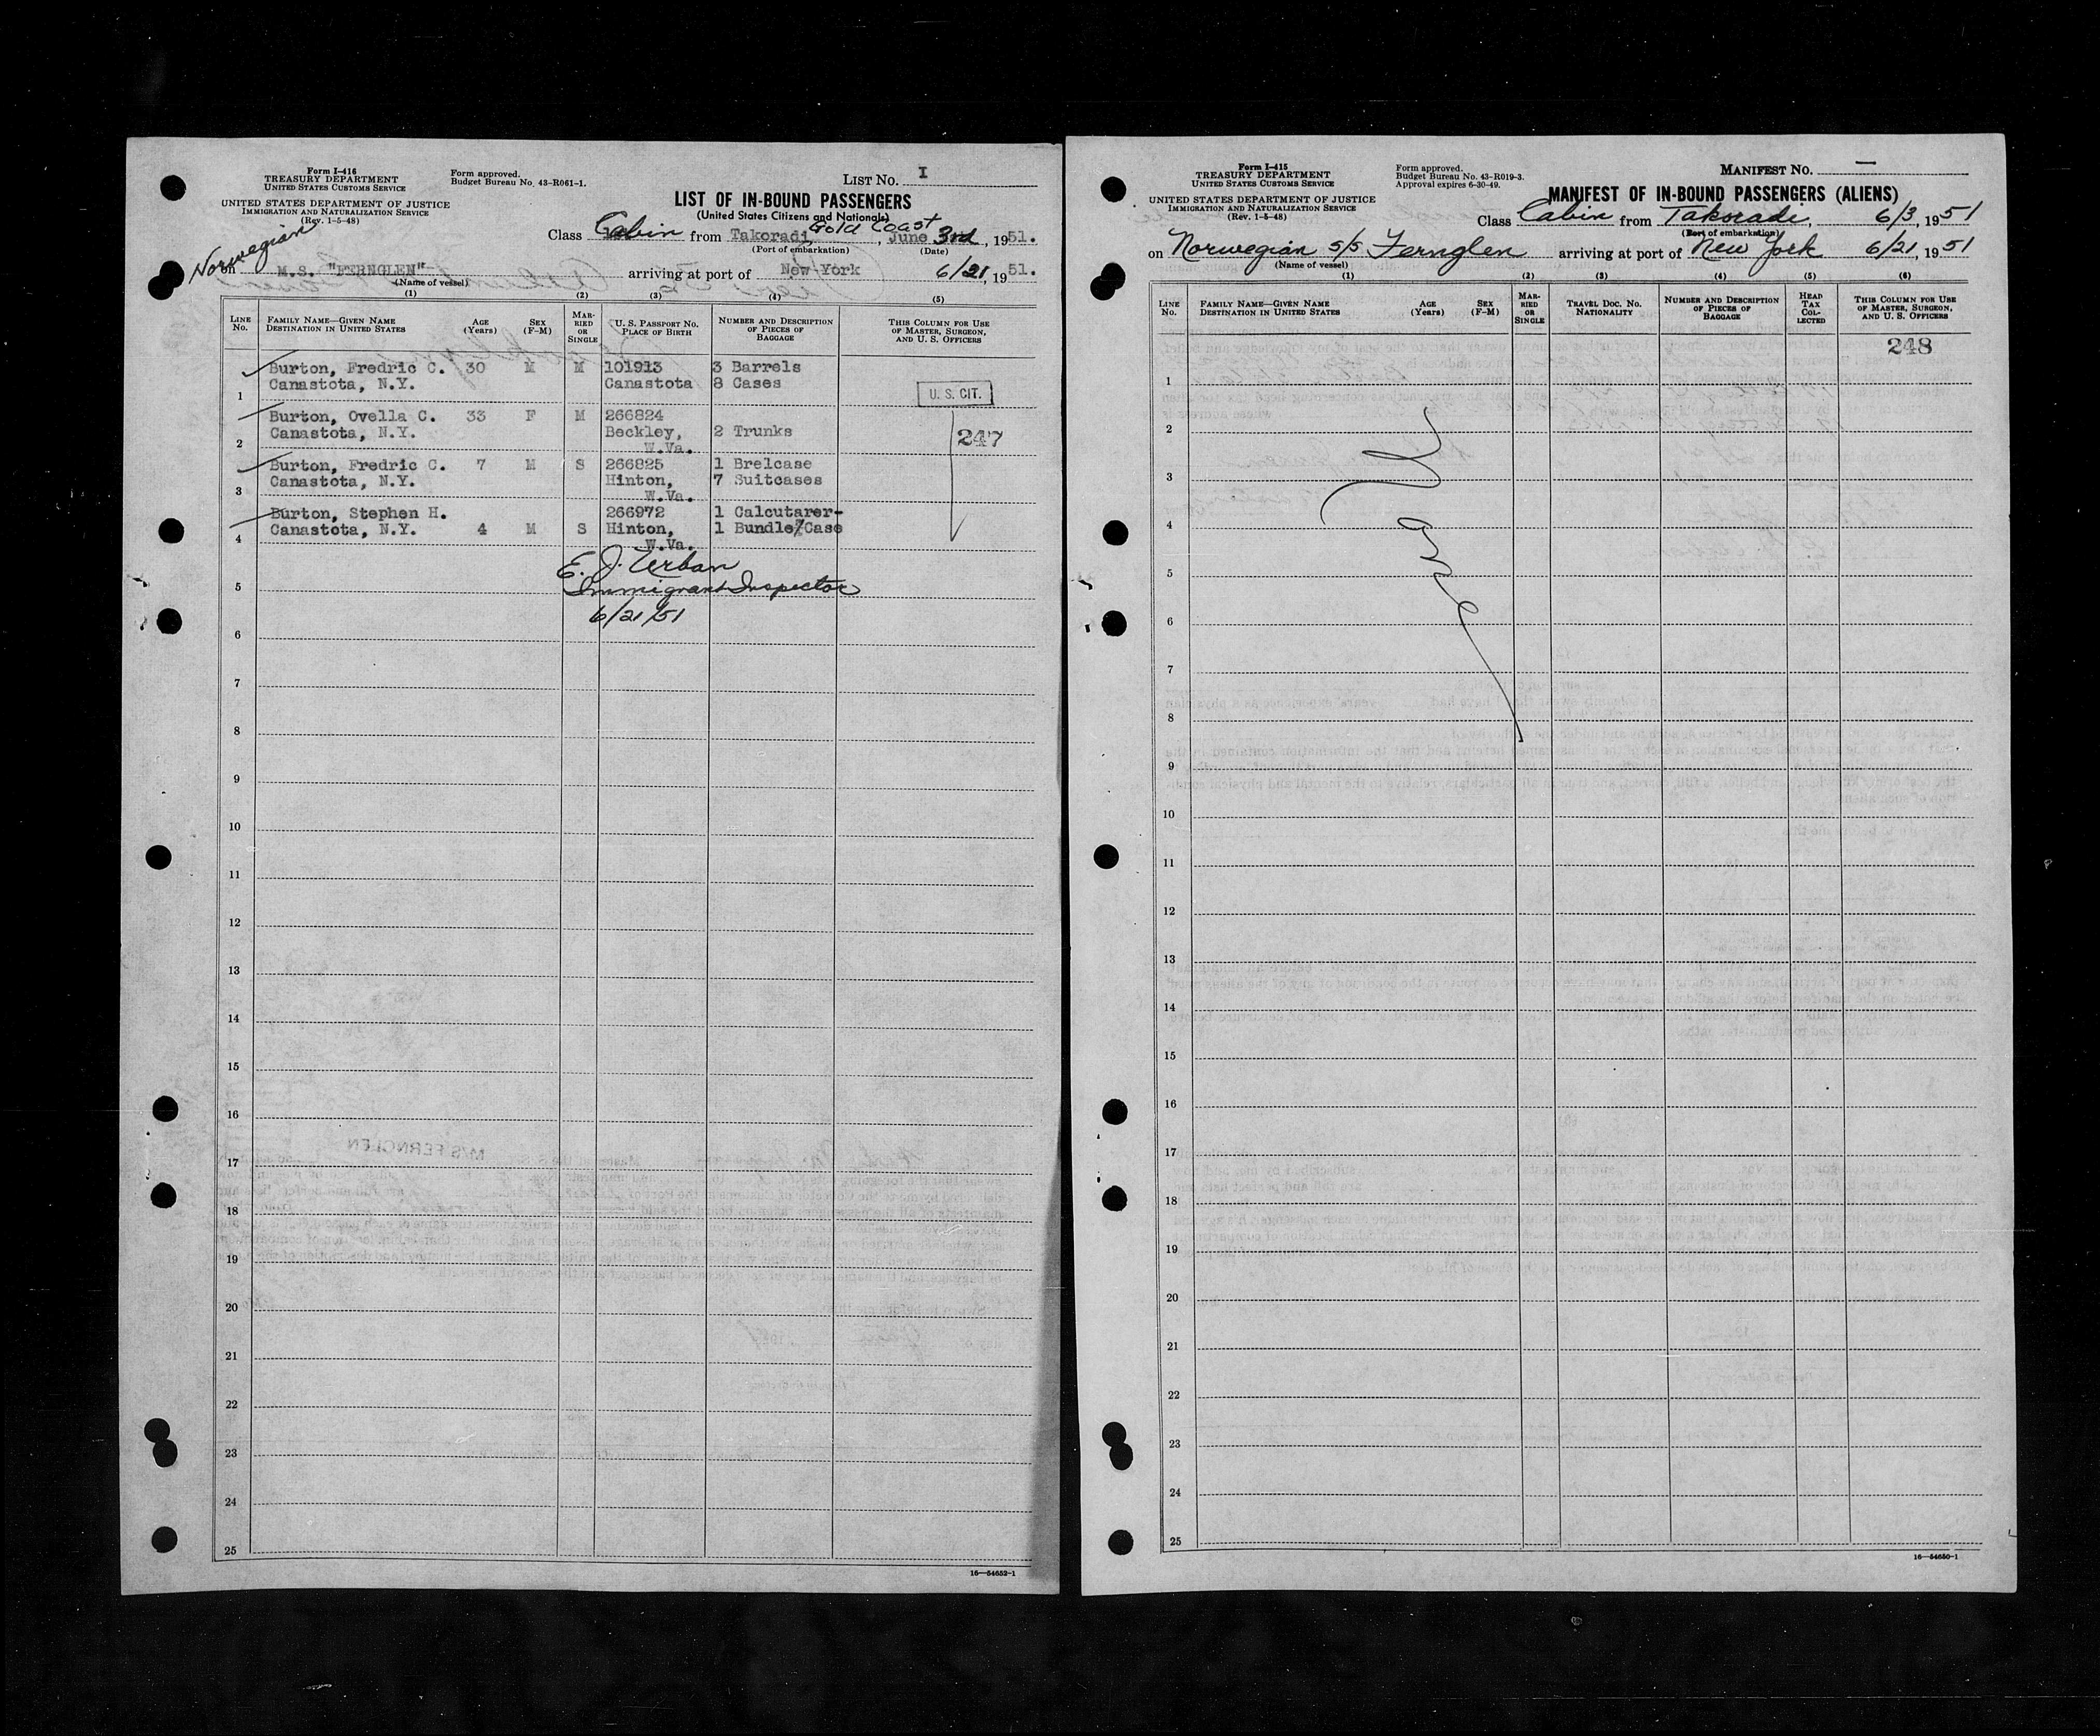 Form I-416
TREASURY DEPARTMENT
UNITED STATES CUSTOMS SERVICE
UNITED STATES DEPARTMENT OF JUSTICE
IMMIGRATION AND NATURALIZATION SERVICE
(Rev. 1-5-48)
Form approved.
Budget Bureau No. 43-R061-1.
LIST NO. I
LIST OF IN-BOUND PASSENGERS
(United States Citizens and Nationals)
Class Cabin from Takoradi, Gold Coast, June 3rd, 1951.
(Port of embarkation) (Date)
Norwegian
on M.S. "FERNGLEN" arriving at port of New York 6/21, 1951.
(Name of vessel)
(1) (2) (3) (4) (5)
LINE No. FAMILY NAME—GIVEN NAME DESTINATION IN UNITED STATES AGE (Years) SEX (F-M) MARRIED OR SINGLE U. S. PASSPORT NO. PLACE OF BIRTH NUMBER AND DESCRIPTION OF PIECES OF BAGGAGE THIS COLUMN FOR USE OF MASTER, SURGEON, AND U. S. OFFICERS
Burton, Fredric C. 30 M M 101913 3 Barrels
1 Canastota, N.Y. Canastota 8 Cases U. S. CIT.
Burton, Ovella C. 33 F M 266824
2 Canastota, N.Y. Beckley, 2 Trunks 247
W.Va.
Burton, Fredric C. 7 M S 266825 1 Brelcase
3 Canastota, N.Y. Hinton, 7 Suitcases
W.Va.
Burton, Stephen H. 266972 1 Calcutarer-
4 Canastota, N.Y. 4 M S Hinton, 1 Bundle/Case
W.Va.
E. J. Urban
5 Immigrant Inspector
6/21/51
6
7
8
9
10
11
12
13
14
15
16
17
18
19
20
21
22
23
24
25
16—54652-1
M/S FERNGLEN
Form I-415
TREASURY DEPARTMENT
UNITED STATES CUSTOMS SERVICE
UNITED STATES DEPARTMENT OF JUSTICE
IMMIGRATION AND NATURALIZATION SERVICE
(Rev. 1-5-48)
Form approved.
Budget Bureau No. 43-R019-3.
Approval expires 6-30-49.
MANIFEST NO. —
MANIFEST OF IN-BOUND PASSENGERS (ALIENS)
Class Cabin from Takoradi, 6/3, 1951
(Port of embarkation)
on Norwegian S/S Fernglen arriving at port of New York 6/21, 1951
(Name of vessel)
(1) (2) (3) (4) (5) (6)
LINE No. FAMILY NAME—GIVEN NAME DESTINATION IN UNITED STATES AGE (Years) SEX (F-M) MARRIED OR SINGLE TRAVEL DOC. NO. NATIONALITY NUMBER AND DESCRIPTION OF PIECES OF BAGGAGE HEAD TAX COLLECTED THIS COLUMN FOR USE OF MASTER, SURGEON, AND U. S. OFFICERS
248
1
2
3
4
5
6
7
8
9
10
11
12
13
14
15
16
17
18
19
20
21
22
23
24
25
16—54650-1